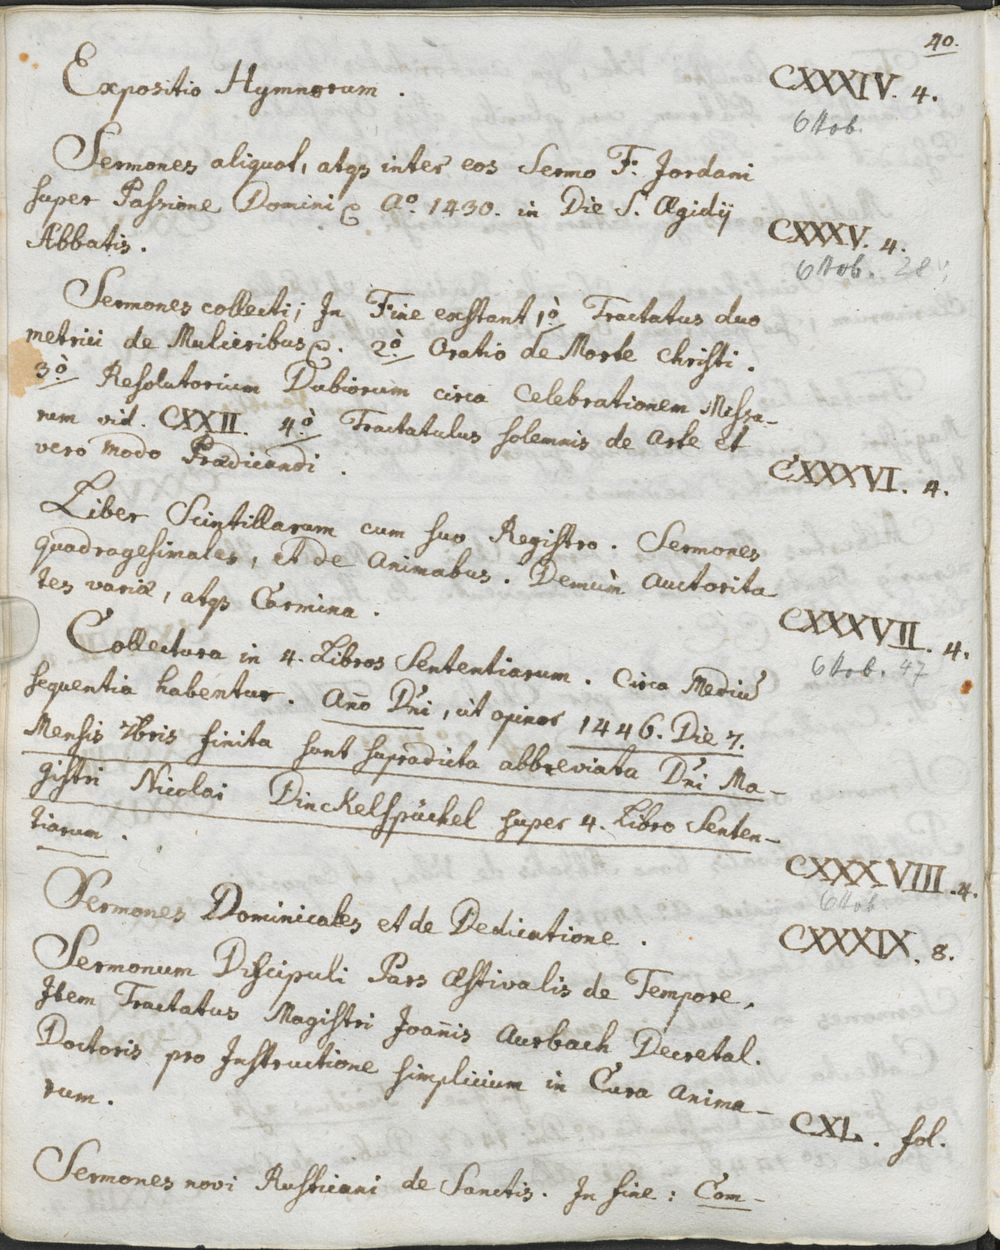 40.
Expositio Hymnorum.
CXXXIV. 4.
6 Nob.
Sermones aliquot, atqs inter eos Sermo F. Jordani
super Passione Domini Aº. 1430. in Die S. Ægidij
Abbatis.
CXXXV. 4.
6 Nob. 28
Sermones collecti; In Fine exstant 1ò Tractatus duo
metrici de Mulieribus. 2ò Oratio de Morte Christi.
3ò Resolutorium Dubiorum circa Celebrationem Missa-
rum vid. CXXII. 4.ò Tractatulus solemnis de Arte et
vero modo Prædicandi.
CXXXVI. 4.
Liber Scintillarum cum suo Registro. Sermones
quadragesimales, et de Animabus. Demùm auctorita
tes variæ, atqs Carmina.
CXXXVII. 4.
6 Nob. 47
Collectura in 4. Libros Sententiarum. Circa Mediũ
sequentia habentur. Año Dñi, ut opinor 1446. Die 7.
Mensis Xbris finita sunt supradicta abbreviata Dñi Ma-
gistri Nicolai Dinckelspückel super 4. Libro Senten-
tiarum.
CXXXVIII. 4.
6 Nob
Sermones Dominicales et de Dedicatione.
CXXXIX. 8.
Sermonum Discipuli Pars Æstivalis de Tempore.
Item Tractatus Magistri Joañis Aurbach Decretal.
Doctoris pro Instructione simplicium in Cura Anima-
rum.
CXL. fol.
Sermones novi Rusticani de Sanctis. In fine: Com-